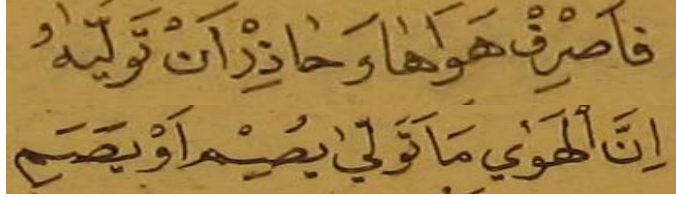 فَاصْرِفْ هَوَاهَا وَحَاذِرْ اَنْ تُوَلِّيَهُ
اِنَّ الْهَوٰي مَا تَوَلّٰي يُصْمِ اَوْ يَصِمِ